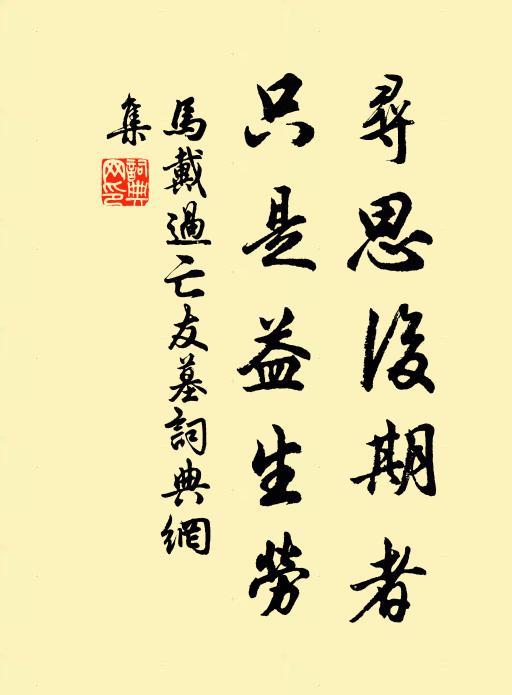 尋思後期者
只是益生勞
馬戴過亡友墓詞典網
集
詞典
网印